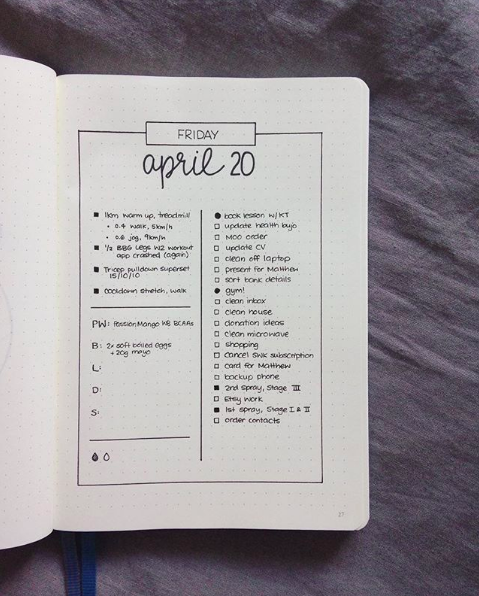 FRIDAY
april 20
1km warm up, treadmill
0.4 walk, 5km/h
0.6 jog, 9km/h
1/2 BBG Legs W2 workout
app crashed (again)
Tricep pulldown superset
15/10/10
cooldown stretch, walk
PW: PassionMango XB BCAAs
B: 2x soft boiled eggs
+ 20g mayo
L:
D:
S:
book lesson w/ KT
update health bujo
MOO order
update CV
clean off laptop
present for Matthew
sort bank details
gym!
clean inbox
clean house
donation ideas
clean microwave
shopping
cancel SWK subscription
card for Matthew
backup phone
2nd spray, Stage III
Etsy work
1st spray, Stage I & II
order contacts
27